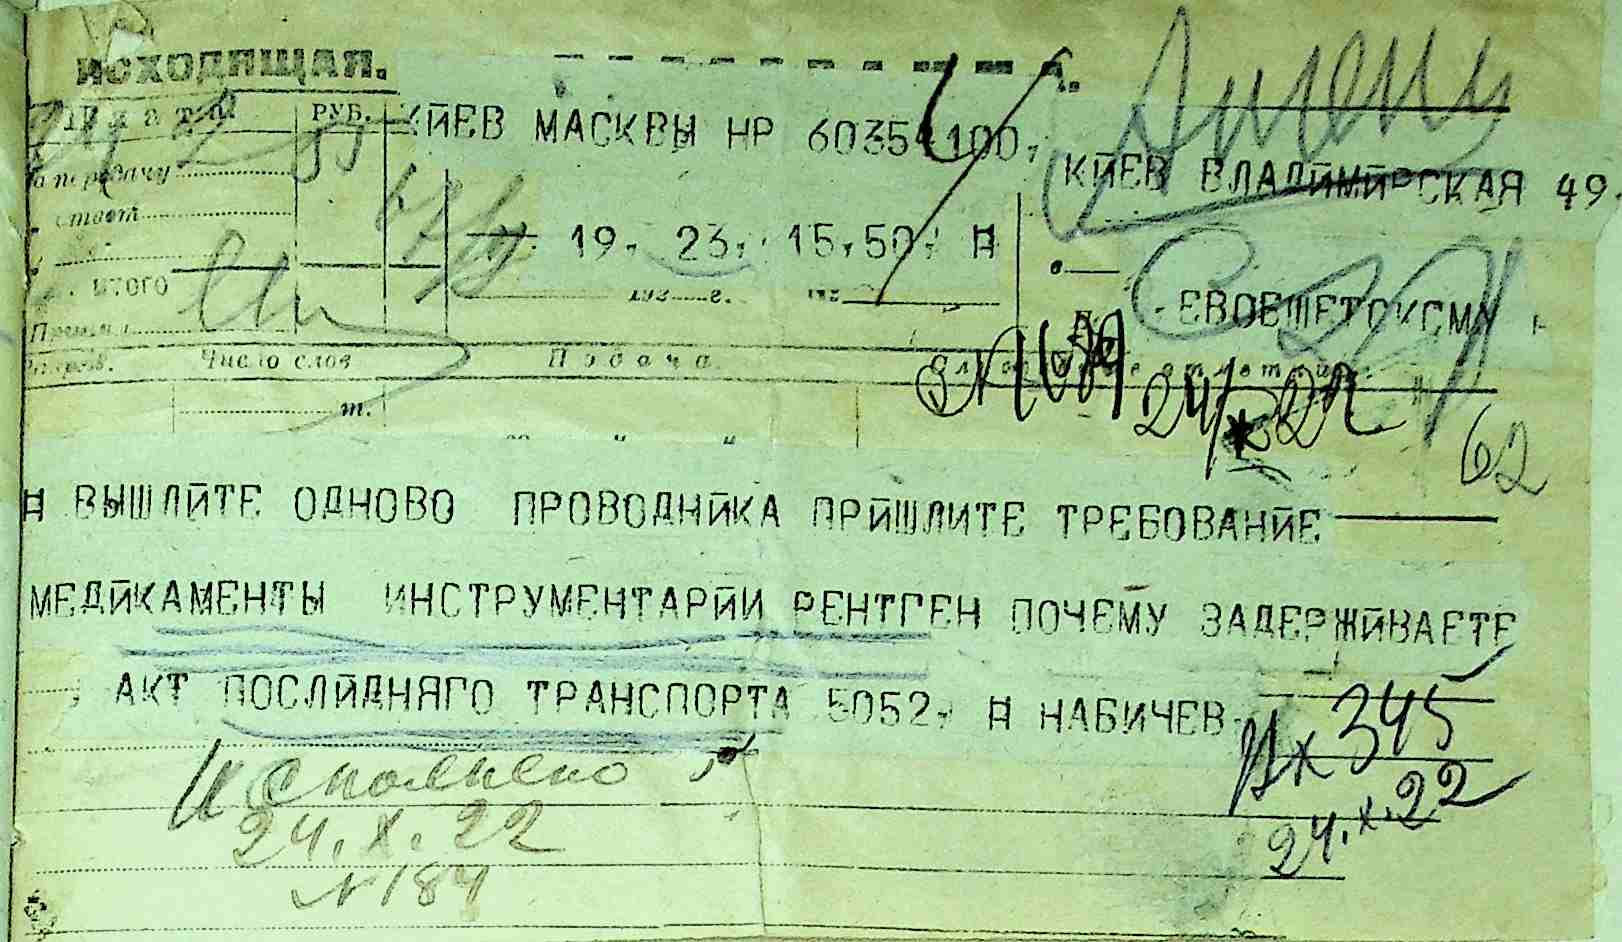 ИСХОДЯЩАЯ.
Плата РУБ. КИЕВ МАСКВЫ НР 60354 100,
за передачу КИЕВ ВЛАДИМИРСКАЯ 49
ответ
19, 23, 15,50, Н
в
итого 192 г.
Принял ЕВОЕШЕТСКСМУ
Число слов Подача. отметки
т.
24/X 22
62
Н ВЫШЛИТЕ ОДНОВО ПРОВОДНИКА ПРИШЛИТЕ ТРЕБОВАНИЕ
МЕДИКАМЕНТЫ ИНСТРУМЕНТАРИИ РЕНТГЕН ПОЧЕМУ ЗАДЕРЖИВАЕТЕ
АКТ ПОСЛИДНЯГО ТРАНСПОРТА 5052, Н НАБИЧЕВ
Вх 345
24.X.22
Исполнено
24.X.22
№ 184